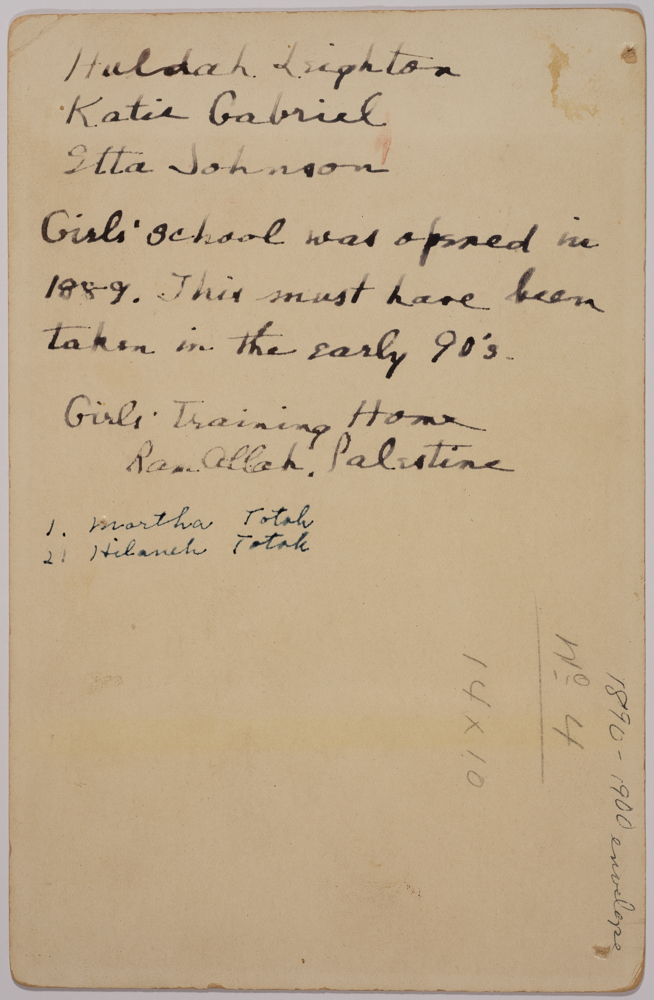 Huldah Leighton
Katie Gabriel
Etta Johnson
Girls' School was opened in
1889. This must have been
taken in the early 90's.
Girls' Training Home
Ram Allah, Palestine
1. Martha Totah
2. Hilaneh Totah
14 x 10
No 4
1890-1900 envelope